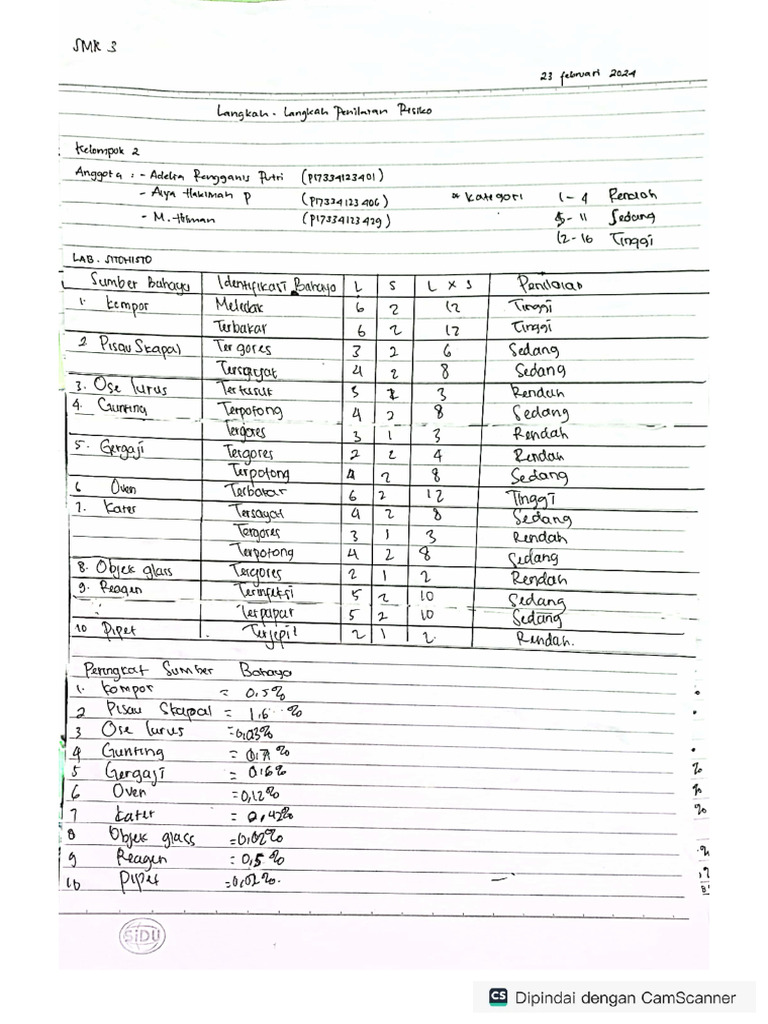 SMK 3
23 februari 2024
Langkah - Langkah Penilaian Risiko
Kelompok 2
Anggota : - Adelia Rengganis Putri (P17334123401)
- Alya Hakimah P (P17334123406) * Kategori 1 - 4 Rendah
- M. Hilman (P17334123429) 5 - 11 Sedang
12 - 16 Tinggi
LAB. SITOHISTO
Sumber Bahaya Identifikasi Bahaya L S L x S Penilaian
1. Kompor Meledak 6 2 12 Tinggi
Terbakar 6 2 12 Tinggi
2 Pisau Skapal Tergores 3 2 6 Sedang
Tersayat 4 2 8 Sedang
3. Ose lurus Tertusuk 3 1 3 Rendah
4. Gunting Terpotong 4 2 8 Sedang
Tergores 3 1 3 Rendah
5. Gergaji Tergores 2 2 4 Rendah
Terpotong 4 2 8 Sedang
6 Oven Terbakar 6 2 12 Tinggi
7. Kater Tersayat 4 2 8 Sedang
Tergores 3 1 3 Rendah
Terpotong 4 2 8 Sedang
8. Objek glass Tergores 2 1 2 Rendah
9. Reagen Terinfeksi 5 2 10 Sedang
Terpapar 5 2 10 Sedang
10 Pipet Terjepit 2 1 2 Rendah.
Peringkat Sumber Bahaya
1. Kompor = 0,5%
2 Pisau Skapal = 1,6 %
3 Ose lurus = 0,03%
4 Gunting = %
5 Gergaji = 0,16%
6 Oven = 0,12%
7 Kater = 0,42%
8 Objek glass = 0,02%
9 Reagen = 0,5%
10 Pipet = 0,02%.
SiDU
CS Dipindai dengan CamScanner